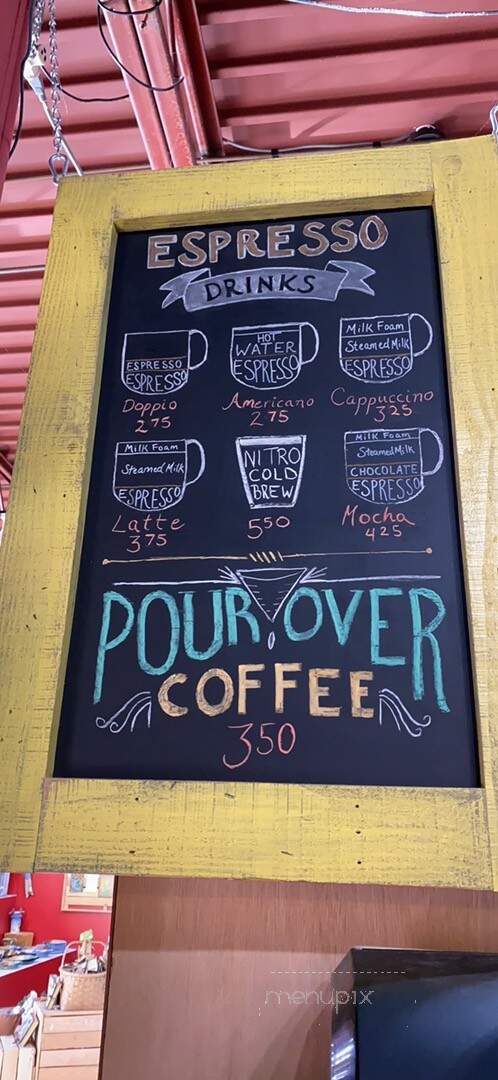 ESPRESSO
DRINKS
ESPRESSO
ESPRESSO
Doppio
2 75
HOT
WATER
ESPRESSO
Americano
2 75
Milk Foam
Steamed Milk
ESPRESSO
Cappuccino
3 25
Milk Foam
Steamed Milk
ESPRESSO
Latte
3 75
NITRO
COLD
BREW
5 50
Milk Foam
Steamed Milk
CHOCOLATE
ESPRESSO
Mocha
4 25
POUR OVER
COFFEE
3 50
menupix